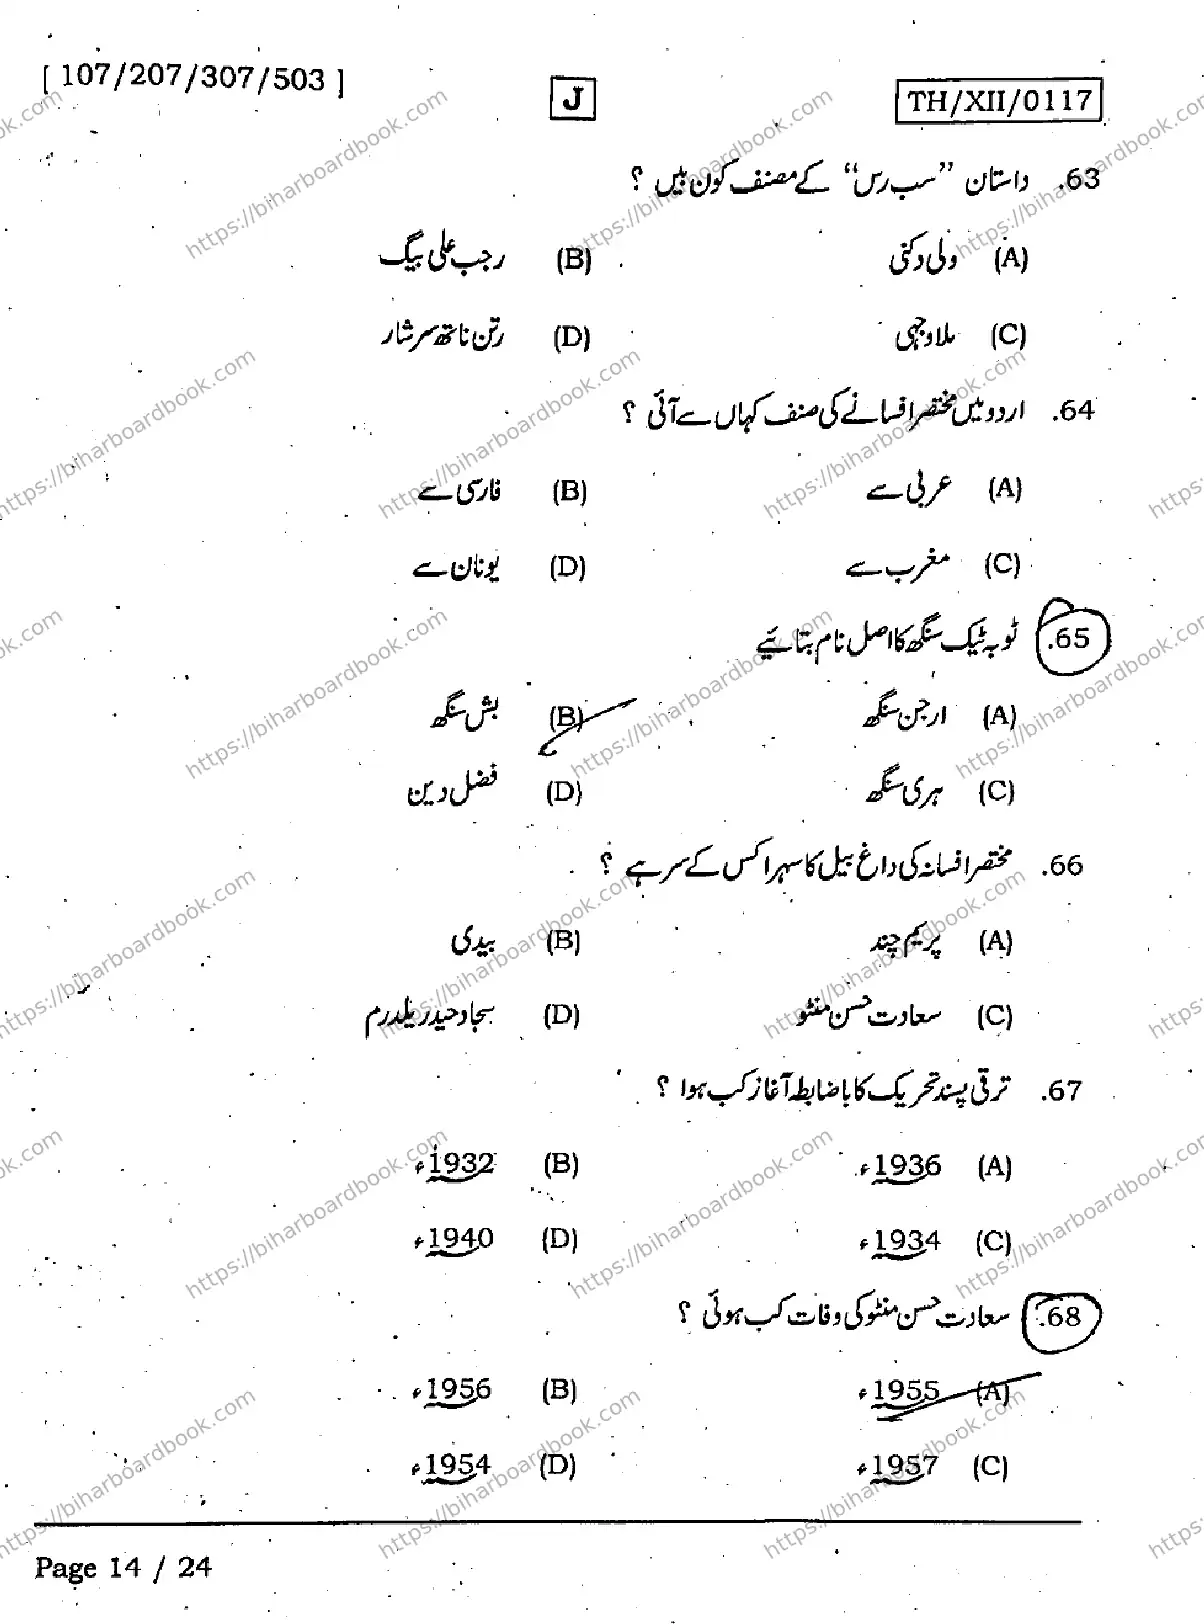 [ 107/207/307/503 ]
J
TH/XII/0117
63. داستان ”سب رس“ کے مصنف کون ہیں ؟
(A) ولی دکنی (B) رجب علی بیگ
(C) ملا وجہی (D) رتن ناتھ سرشار
64. اردو میں مختصر افسانے کی صنف کہاں سے آئی ؟
(A) عربی سے (B) فارسی سے
(C) مغرب سے (D) یونان سے
65. ٹوبہ ٹیک سنگھ کا اصل نام بتائیے
(A) ارجن سنگھ (B) بشن سنگھ
(C) ہری سنگھ (D) فضل دین
66. مختصر افسانہ کی داغ بیل کا سہرا کس کے سر ہے ؟
(A) پریم چند (B) بیدی
(C) سعادت حسن منٹو (D) سجاد حیدر یلدرم
67. ترقی پسند تحریک کا باضابطہ آغاز کب ہوا ؟
(A) 1936ء (B) 1932ء
(C) 1934ء (D) 1940ء
68. سعادت حسن منٹو کی وفات کب ہوئی ؟
(A) 1955ء (B) 1956ء
(C) 1957ء (D) 1954ء
Page 14 / 24
https://biharboardbook.com